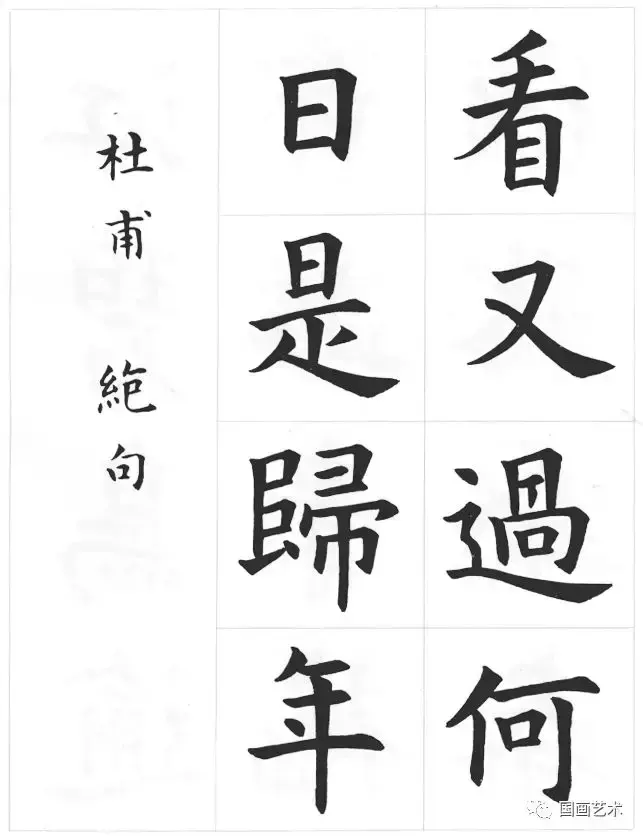 看又過何
日是歸年
杜甫 絶句
国画艺术